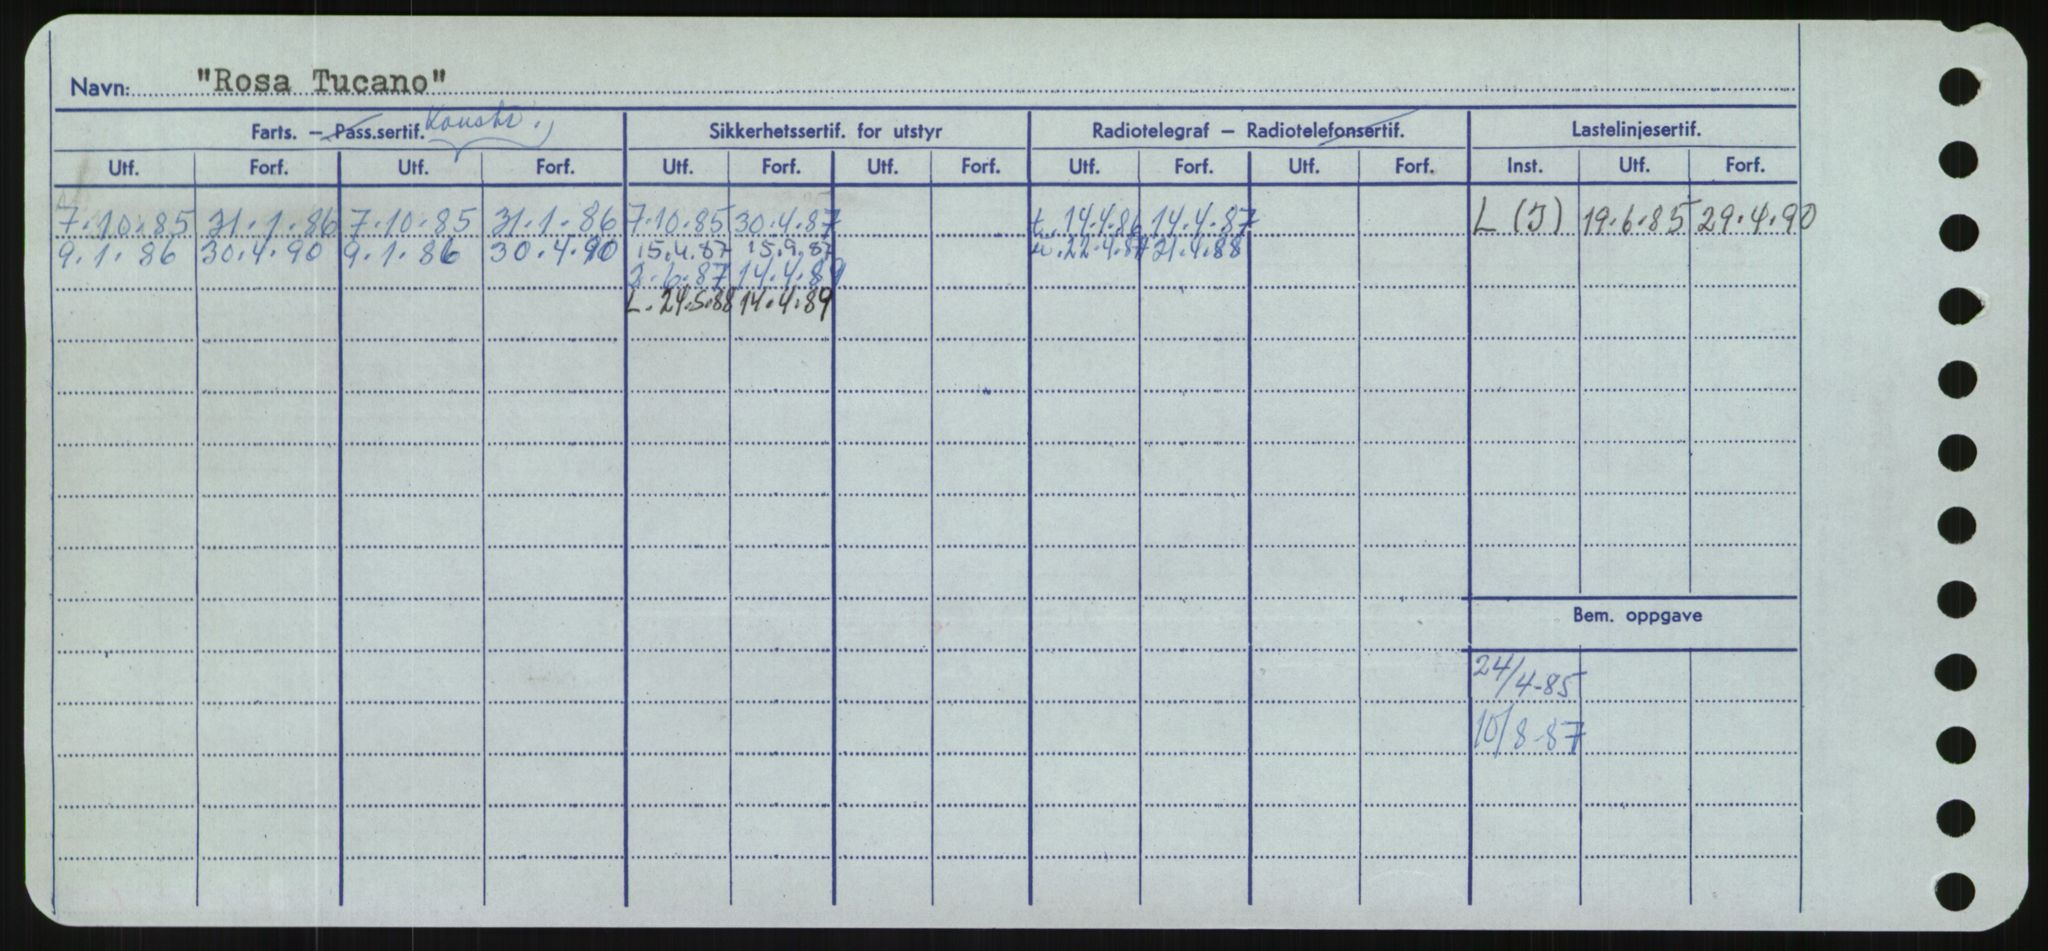 Navn: "Rosa Tucano"
Farts. – Pass.sertif. Konstr. Sikkerhetssertif. for utstyr Radiotelegraf – Radiotelefonsertif. Lastelinjesertif.
Utf. Forf. Utf. Forf. Utf. Forf. Utf. Forf. Utf. Forf. Utf. Forf. Inst. Utf. Forf.
7.10.85 31.1.86 7.10.85 31.1.86 7.10.85 30.4.87 t. 14.4.86 14.4.87 L (I) 19.6.85 29.4.90
9.1.86 30.4.90 9.1.86 30.4.90 15.4.87 15.9.87 22.4.87 21.4.88
3.6.87 14.4.89
L. 24.5.88 14.4.89
Bem. oppgave
24/4-85
10/8-87